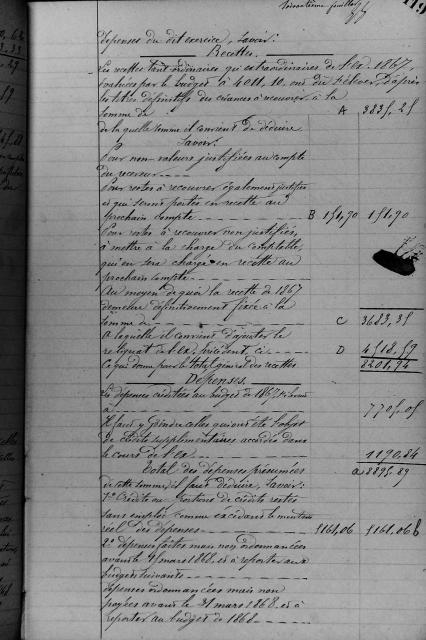 dépenses du dit exercice, Savoir:
Recettes.
Les recettes tant ordinaires qu'extraordinaires de l'ex. 1867
évaluées par le budget à 4011,10, ont dû s'élever d'après
les titres définitifs des créances à recouvrer à la
somme de A 3835,25
de laquelle somme il convient de déduire
Savoir:
Pour non-valeurs justifiées au compte
du receveur
Pour restes à recouvrer également justifiés
et qui seront portés en recette au
prochain compte B 151,90 151,90
Pour restes à recouvrer non justifiés,
à mettre à la charge du comptable,
qui en sera chargé en recette au
prochain compte
Au moyen de quoi la recette de 1867
demeure définitivement fixée à la
somme de C 3683,35
à laquelle il convient d'ajouter le
reliquat de l'ex. précédent, ci D 4518,59
Ce qui donne pour le total général des recettes 8201,94
Dépenses.
Les dépenses créditées au budget de 1867
à 7705,05
Il faut y joindre celles qui ont été l'objet
de crédits supplémentaires accordés dans
le cours de l'ex 1190,84
Total des dépenses présumées a 8895,89
de cette somme, il faut déduire, Savoir:
1° Crédits ou portions de crédits restés
sans emploi comme excédant le montant
réel des dépenses 1161,06 1161,06 b
2° dépenses faites mais non ordonnancées
avant le 15 mars 1868, et à reporter aux
budgets suivants
dépenses ordonnancées mais non
payées avant le 31 mars 1868, et à
reporter au budget de 1868